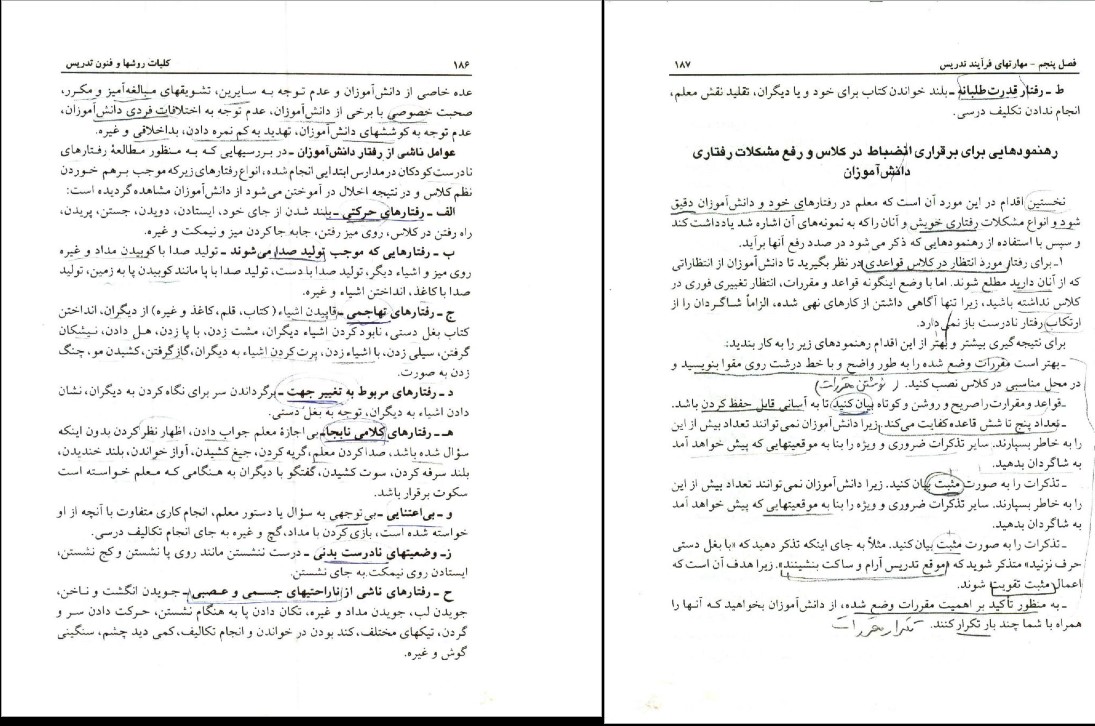 ۱۸۶
کلیات روشها و فنون تدریس
عده خاصی از دانش‌آموزان و عدم توجه به سایرین، تشویقهای مبالغه‌آمیز و مکرر،
صحبت خصوصی با برخی از دانش‌آموزان، عدم توجه به اختلافات فردی دانش‌آموزان،
عدم توجه به کوششهای دانش‌آموزان، تهدید به کم نمره دادن، بداخلاقی و غیره.
عوامل ناشی از رفتار دانش‌آموزان ـ در بررسیهایی که به منظور مطالعهٔ رفتارهای
نادرست کودکان در مدارس ابتدایی انجام شده، انواع رفتارهای زیر که موجب برهم خوردن
نظم کلاس و در نتیجه اخلال در آموختن می‌شود از دانش‌آموزان مشاهده گردیده است:
الف ـ رفتارهای حرکتی ـ بلند شدن از جای خود، ایستادن، دویدن، جستن، پریدن،
راه رفتن در کلاس، روی میز رفتن، جابه جا کردن میز و نیمکت و غیره.
ب ـ رفتارهایی که موجب تولید صدا می‌شوند ـ تولید صدا با کوبیدن مداد و غیره
روی میز و اشیاء دیگر، تولید صدا با دست، تولید صدا با پا مانند کوبیدن پا به زمین، تولید
صدا با کاغذ، انداختن اشیاء و غیره.
ج ـ رفتارهای تهاجمی ـ قاپیدن اشیاء (کتاب، قلم، کاغذ و غیره) از دیگران، انداختن
کتاب بغل دستی، نابود کردن اشیاء دیگران، مشت زدن، با پا زدن، هل دادن، نیشکان
گرفتن، سیلی زدن، با اشیاء زدن، پرت کردن اشیاء به دیگران، گاز گرفتن، کشیدن مو، چنگ
زدن به صورت.
د ـ رفتارهای مربوط به تغییر جهت ـ برگرداندن سر برای نگاه کردن به دیگران، نشان
دادن اشیاء به دیگران، توجه به بغل دستی.
هـ ـ رفتارهای کلامی نابجا ـ بی اجازهٔ معلم جواب دادن، اظهار نظر کردن بدون اینکه
سؤال شده باشد، صدا کردن معلم، گریه کردن، جیغ کشیدن، آواز خواندن، بلند خندیدن،
بلند سرفه کردن، سوت کشیدن، گفتگو با دیگران به هنگامی که معلم خواسته است
سکوت برقرار باشد.
و ـ بی‌اعتنایی ـ بی‌توجهی به سؤال یا دستور معلم، انجام کاری متفاوت با آنچه از او
خواسته شده است، بازی کردن با مداد، گچ و غیره به جای انجام تکالیف درسی.
ز ـ وضعیتهای نادرست بدنی ـ درست ننشستن مانند روی پا نشستن و کج نشستن،
ایستادن روی نیمکت به جای نشستن.
ح ـ رفتارهای ناشی از ناراحتیهای جسمی و عصبی ـ جویدن انگشت و ناخن،
جویدن لب، جویدن مداد و غیره، تکان دادن پا به هنگام نشستن، حرکت دادن سر و
گردن، تیکهای مختلف، کند بودن در خواندن و انجام تکالیف، کمی دید چشم، سنگینی
گوش و غیره.
فصل پنجم – مهارتهای فرآیند تدریس
۱۸۷
ط ـ رفتار قدرت طلبانه ـ بلند خواندن کتاب برای خود و یا دیگران، تقلید نقش معلم،
انجام ندادن تکلیف درسی.
رهنمودهایی برای برقراری انضباط در کلاس و رفع مشکلات رفتاری
دانش‌آموزان
نخستین اقدام در این مورد آن است که معلم در رفتارهای خود و دانش‌آموزان دقیق
شود و انواع مشکلات رفتاری خویش و آنان را که به نمونه‌های آن اشاره شد یادداشت کند
و سپس با استفاده از رهنمودهایی که ذکر می شود در صدد رفع آنها برآید.
۱ـ برای رفتار مورد انتظار در کلاس قواعدی در نظر بگیرید تا دانش‌آموزان از انتظاراتی
که از آنان دارید مطلع شوند. اما با وضع اینگونه قواعد و مقررات، انتظار تغییری فوری در
کلاس نداشته باشید، زیرا تنها آگاهی داشتن از کارهای نهی شده، الزاماً شاگردان را از
ارتکاب رفتار نادرست باز نمی‌دارد.
برای نتیجه گیری بیشتر و بهتر از این اقدام رهنمودهای زیر را به کار بندید:
ـ بهتر است مقررات وضع شده را به طور واضح و با خط درشت روی مقوا بنویسید و
در محل مناسبی در کلاس نصب کنید. ( نوشتن مقررات )
ـ قواعد و مقرارت را صریح و روشن و کوتاه بیان کنید تا به آسانی قابل حفظ کردن باشد.
ـ تعداد پنج تا شش قاعده کفایت می‌کند، زیرا دانش‌آموزان نمی‌توانند تعداد بیش از این
را به خاطر بسپارند. سایر تذکرات ضروری و ویژه را بنا به موقعیتهایی که پیش خواهد آمد
به شاگردان بدهید.
ـ تذکرات را به صورت مثبت بیان کنید. زیرا دانش‌آموزان نمی‌توانند تعداد بیش از این
را به خاطر بسپارند. سایر تذکرات ضروری و ویژه را بنا به موقعیتهایی که پیش خواهد آمد
به شاگردان بدهید.
ـ تذکرات را به صورت مثبت بیان کنید. مثلاً به جای اینکه تذکر دهید که «با بغل دستی
حرف نزنید» متذکر شوید که «موقع تدریس آرام و ساکت بنشینند». زیرا هدف آن است که
اعمال مثبت تقویت شوند.
ـ به منظور تأکید بر اهمیت مقررات وضع شده، از دانش‌آموزان بخواهید که آنها را
همراه با شما چند بار تکرار کنند. تکرار مقررات